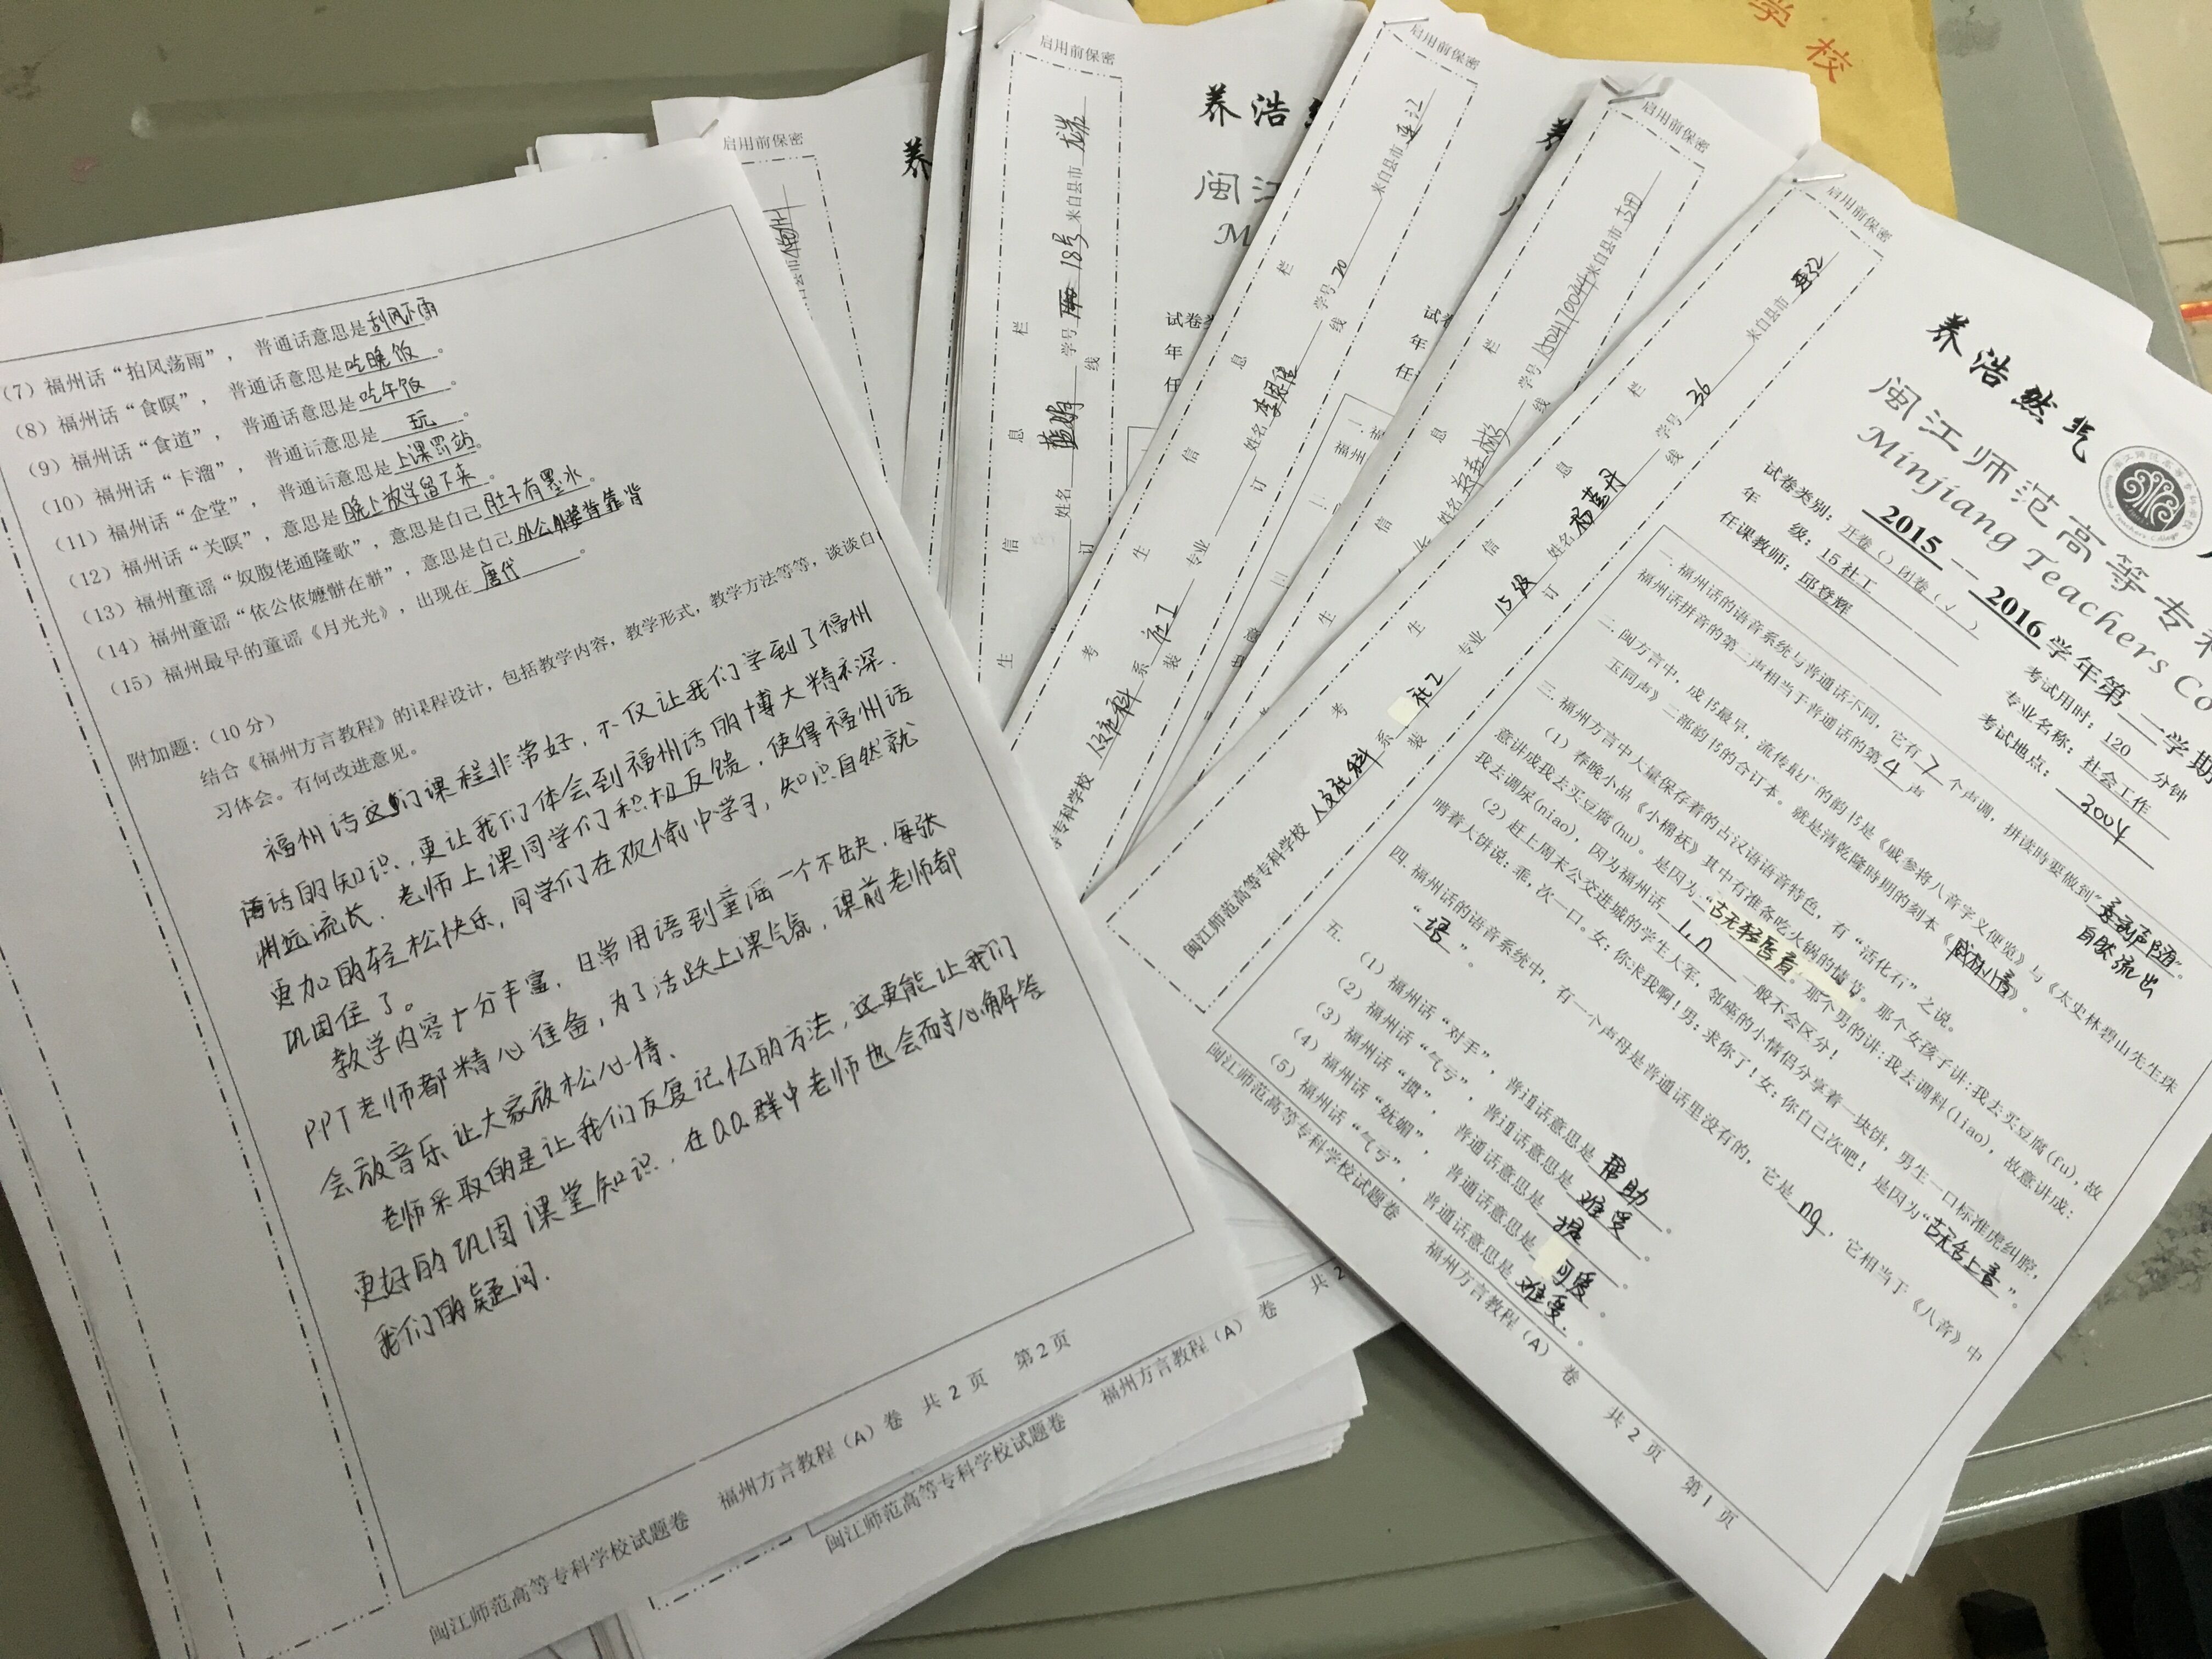 （7）福州话“拍风荡雨”， 普通话意思是刮风下雨
（8）福州话“食暝”， 普通话意思是吃晚饭。
（9）福州话“食道”， 普通话意思是吃午饭。
（10）福州话“卡溜”， 普通话意思是 玩 。
（11）福州话“企堂”， 普通话意思是上课罚站。
（12）福州话“关暝”，意思是晚上放学留下来。
（13）福州童谣“奴腹佬通隆歌”，意思是自己肚子有墨水。
（14）福州童谣“依公依嬷骿在骿”，意思是自己外公外婆背靠背
（15）福州最早的童谣《月光光》，出现在 唐代 。
附加题：（10 分）
结合《福州方言教程》的课程设计，包括教学内容，教学形式，教学方法等等，谈谈自
习体会。有何改进意见。
福州话这门课程非常好，不仅让我们学到了福州
话的知识，更让我们体会到福州话的博大精深．
渊远流长．老师上课同学们积极反馈，使得福州话
更加的轻松快乐，同学们在欢愉中学习，知识自然就
巩固住了。
教学内容十分丰富，日常用语到童谣一个不缺，每张
PPT老师都精心准备，为了活跃上课气氛，课前老师都
会放音乐让大家放松心情．
老师采取的是让我们反复记忆的方法，这更能让我们
更好的巩固课堂知识．在QQ群中老师也会耐心解答
我们的疑问．
闽江师范高等专科学校试题卷 福州方言教程（A）卷 共 2 页 第 2 页
闽江师范高等专科学校试题卷 福州方言教程（A）卷 共 2
启用前保密
启用前保密
学号 18号 来自县市
姓名
养浩
闽江
启用前保密
学号 20 来自县市 连江
专科学校 系 社工 专业 姓名
启用前保密
学号 来自县市 古田
启用前保密
闽江师范高等专科学校 人文社科 系 社工 专业 15级 姓名 学号 36 来自县市 连江
考 生 信 息 栏
装 订 线
学 校
养浩然气
闽江师范高等专科
Minjiang Teachers Co
2015 -- 2016 学年第 二 学期
试卷类别：开卷（）闭卷（√）
年 级：15 社工
任课教师：邱登辉
考试用时：120 分钟
专业名称：社会工作
考试地点：
一．福州话的语音系统与普通话不同，它有 7 个声调，拼读时要做到“ 自然流出”。
福州话拼音的第二声相当于普通话的第 4 声
二．闽方言中，成书最早，流传最广的韵书是《戚参将八音字义便览》与《太史林碧山先生珠
玉同声》二部韵书的合订本。就是清乾隆时期的刻本《戚林八音》。
三．福州方言中大量保存着的古汉语语音特色，有“活化石”之说。
（1）春晚小品《小棉袄》其中有准备吃火锅的情节。那个女孩子讲：我去买豆腐(fu)，故
意讲成我去买豆腐(hu)。是因为“古无轻唇音。那个男的讲：我去调料(liao)，故意讲成：
我去调尿(niao)，因为福州话 l.n 一般不会区分！
（2）赶上周末公交进城的学生大军，邻座的小情侣分享着一块饼，男生一口标准虎纠腔，
啃着大饼说：乖，次一口。女：你求我啊！男：求你了！女：你自己次吧！是因为“古无舌上音”。
四．福州话的语音系统中，有一个声母是普通话里没有的，它是 ng ，它相当于《八音》中
“语”。
五．（1）福州话“对手”，普通话意思是 帮助 。
（2）福州话“气亏”，普通话意思是 难受 。
（3）福州话“掼”，普通话意思是 提 。
（4）福州话“妩媚”，普通话意思是 可爱 。
（5）福州话“气亏”，普通话意思是 难受．。
闽江师范高等专科学校试题卷 福州方言教程（A）卷 共 2 页 第 1 页